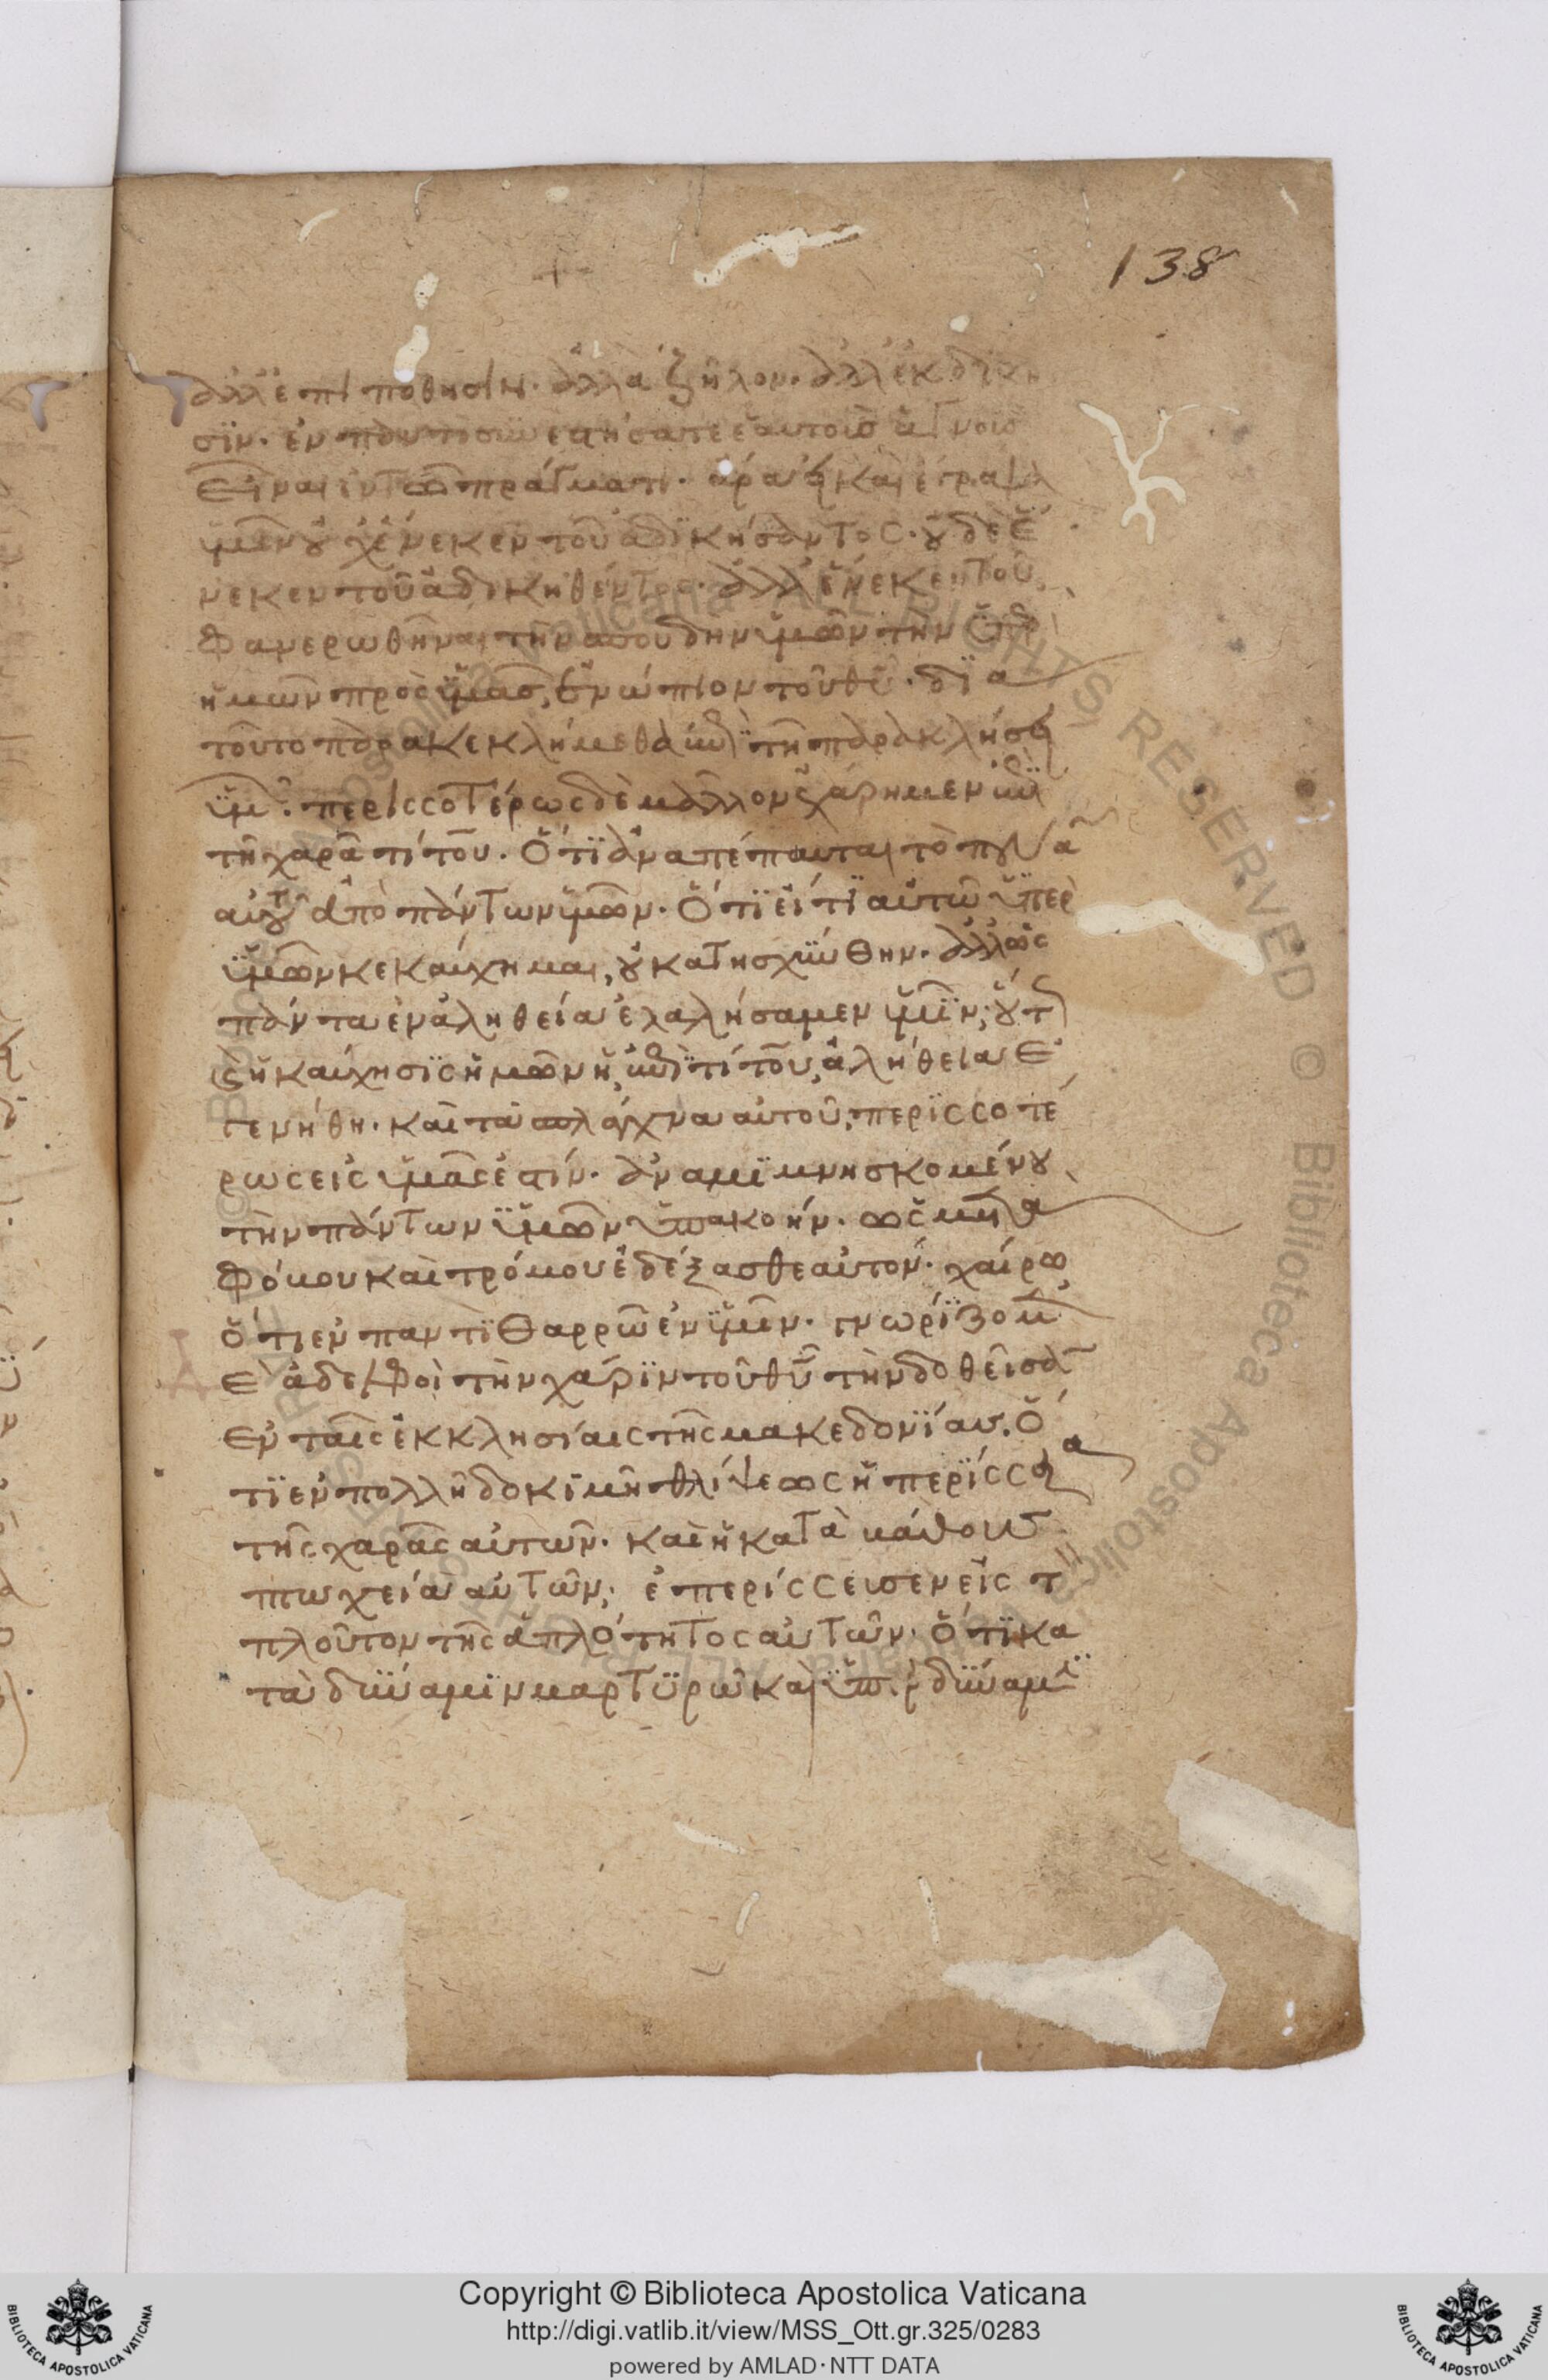 138
ἀλλ' ἐπιπόθησιν· ἀλλὰ ζῆλον· ἀλλ' ἐκδίκη
σϊν· ἐν παντὶ συνεστήσατε ἑαυτοὺς ἁγνοὺς
εἶναι ἐν τῶ πράγματι· ἄρα εἰ καὶ ἔγραψα
ὑμῖν οὐχ ἕνεκεν τοῦ ἀδϊκήσαντος· οὐδὲ ἕ
νεκεν τοῦ ἀδικηθέντος· ἀλλ' ἕνεκεν τοῦ
φανερωθῆναι τὴν σπουδὴν ὑμῶν τὴν ὑπὲρ
ἡμῶν πρὸς ὑμᾶς, ἐνώπιον τοῦ θῦ· δϊὰ
τοῦτο παρακεκλήμεθα ἐπῒ τῆ παρακλήσει
ὑμ· περισσοτέρως δὲ μᾶλλον ἐχάρημεν ἐπῒ
τῆ χαρᾶ τίτου· ὅτϊ ἀναπέπαυται τὸ πνα
αὐτοῦ ἀπὸ πάντων ὑμῶν· ὅτϊ εἴ τϊ αὐτῶ ὑπὲρ
ὑμῶν κεκαύχημαι, οὐ κατησχύνθην· ἀλλ' ὡς
πάντα ἐν ἀληθεία ἐλαλήσαμεν ὑμῖν, οὕτ
ἡ καύχησϊς ἡμῶν ἡ ἐπῒ τίτου, ἀλήθεια ἐ
γενήθη· καὶ τὰ σπλάγχνα αὐτοῦ, περϊσσοτέ
ρως εἰς ὑμᾶς ἐστίν· ἀναμϊμνησκομένου
τὴν πάντων ὑμῶν ὑπακοήν· ὡς μετὰ
φόβου καὶ τρόμου ἐδέξασθε αὐτόν· χαίρω
ὅτι ἐν παντῒ θαρρῶ ἐν ὑμῖν· γνωρίζομ
ε ἀδελφοὶ τὴν χάρϊν τοῦ θῦ τὴν δοθεῖσα
ἐν ταῖς ἐκκλησίαις τῆς μακεδονίας· ὅ
τϊ ἐν πολλῆ δοκϊμῆ θλίψεως ἡ περϊσσεία
τῆς χαρᾶς αὐτῶν· καὶ ἡ κατὰ βάθους
πτωχεία αὐτῶν, ἐπερίσσευσεν εἰς τ
πλοῦτον τῆς ἁπλότητος αὐτῶν· ὅτϊ κα
τὰ δύναμϊν μαρτϋρῶ καὶ ὑπὲρ δύναμϊ
Copyright © Biblioteca Apostolica Vaticana
http://digi.vatlib.it/view/MSS_Ott.gr.325/0283
powered by AMLAD·NTT DATA